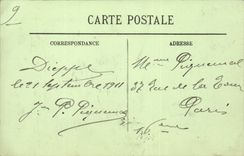 2
CARTE POSTALE
CORRESPONDANCE
ADRESSE
Dieppe
le 21 Septembre 1911
Mme
37 Rue de la Tour
Paris